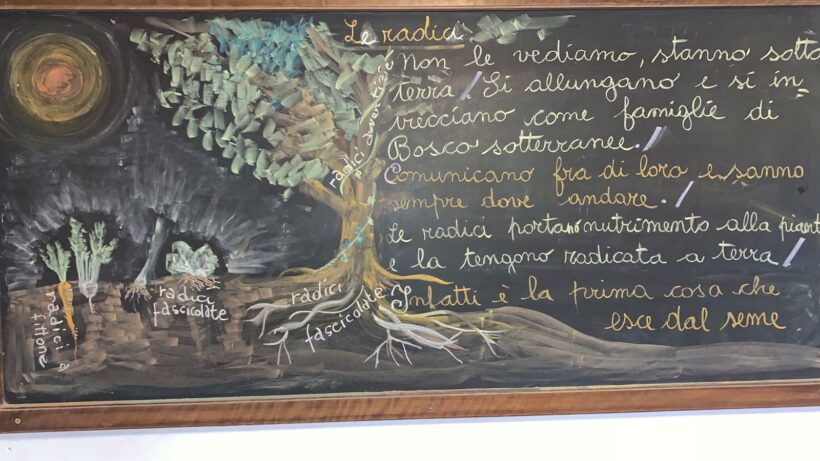 Le radici
Non le vediamo, stanno sotto
terra. Si allungano e si in-
trecciano come famiglie di
Bosco sotterranee.
Comunicano fra di loro e sanno
sempre dove andare.
Le radici portano nutrimento alla piant
e la tengono radicata a terra.
Infatti è la prima cosa che
esce dal seme.
radici avventizie
radici a
fittone
radici
fascicolate
radici
fascicolate